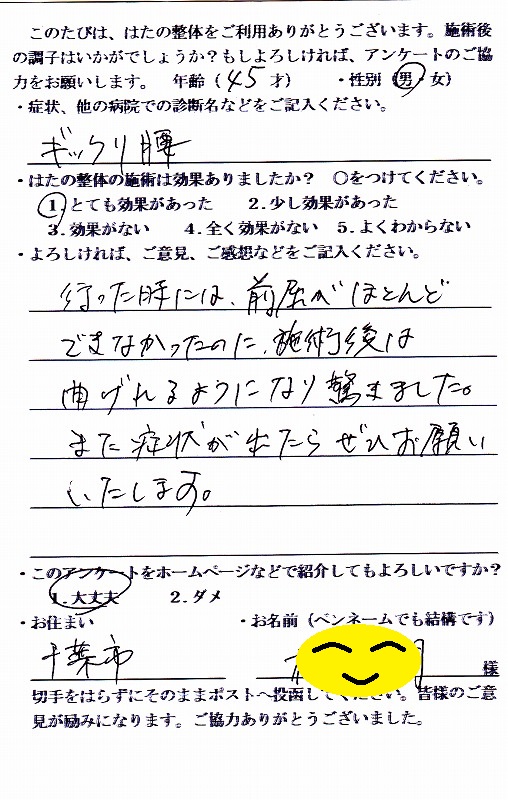 このたびは、はたの整体をご利用ありがとうございます。施術後
の調子はいかがでしょうか？もしよろしければ、アンケートのご協
力をお願いします。　年齢（45才）　・性別（男・女）
・症状、他の病院での診断名などをご記入ください。
ギックリ腰
・はたの整体の施術は効果ありましたか？　○をつけてください。
1.とても効果があった　2.少し効果があった
3.効果がない　4.全く効果がない　5.よくわからない
・よろしければ、ご意見、ご感想などをご記入ください。
行った時には、前屈がほとんど
できなかったのに、施術後は
曲げれるようになり驚きました。
また症状が出たらぜひお願い
いたします。
・このアンケートをホームページなどで紹介してもよろしいですか？
1.大丈夫　2.ダメ
・お住まい　・お名前（ペンネームでも結構です）
千葉市　様
切手をはらずにそのままポストへ投函してください。皆様のご意
見が励みになります。ご協力ありがとうございました。